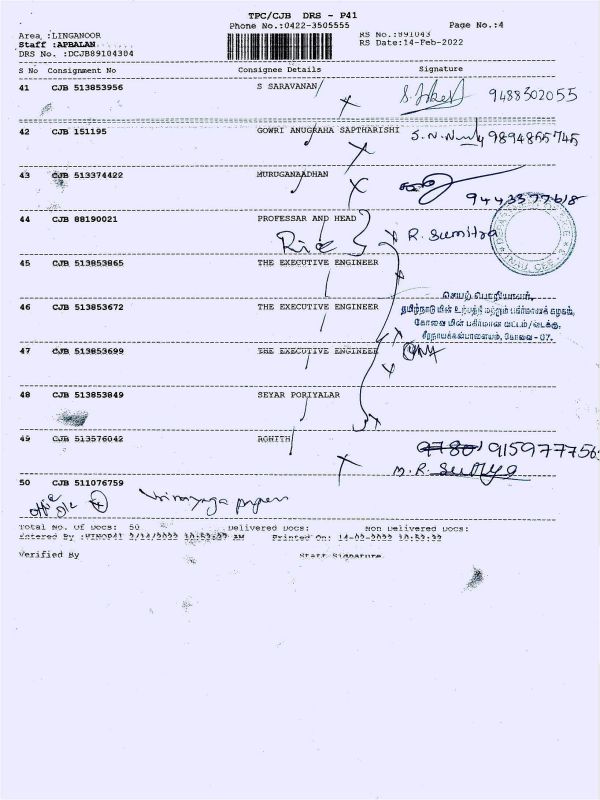 TPC/CJB DRS - P41
Phone No.:0422-3505555 Page No.:4
Area :LINGANOOR RS No.:891043
Staff :APBALAN RS Date:14-Feb-2022
DRS No. :DCJB89104304
S No Consignment No Consignee Details Signature
41 CJB 513853956 S SARAVANAN 9488302055
42 CJB 151195 GOWRI ANUGRAHA SAPTHARISHI 9894865745
43 CJB 513374422 MURUGANAADHAN 9443377618
44 CJB 88190021 PROFESSAR AND HEAD R. Sumitra
45 CJB 513853865 THE EXECUTIVE ENGINEER
46 CJB 513853672 THE EXECUTIVE ENGINEER
செயற் பொறியாளர்,
தமிழ்நாடு மின் உற்பத்தி மற்றும் பகிர்மானக் கழகம்,
கோவை மின் பகிர்மான வட்டம்/வடக்கு,
சீரநாயக்கன்பாளையம், கோவை - 07.
47 CJB 513853699 THE EXECUTIVE ENGINEER
48 CJB 513853849 SEYAR PORIYALAR
49 CJB 513576042 ROHITH 9780 915977756
M. R. Surya
50 CJB 511076759
Total No. Of Docs: 50 Delivered Docs: Non Delivered Docs:
Entered By :VINOP41 2/14/2022 10:53:27 AM Printed On: 14-02-2022 10:53:32
Verified By Staff Signature